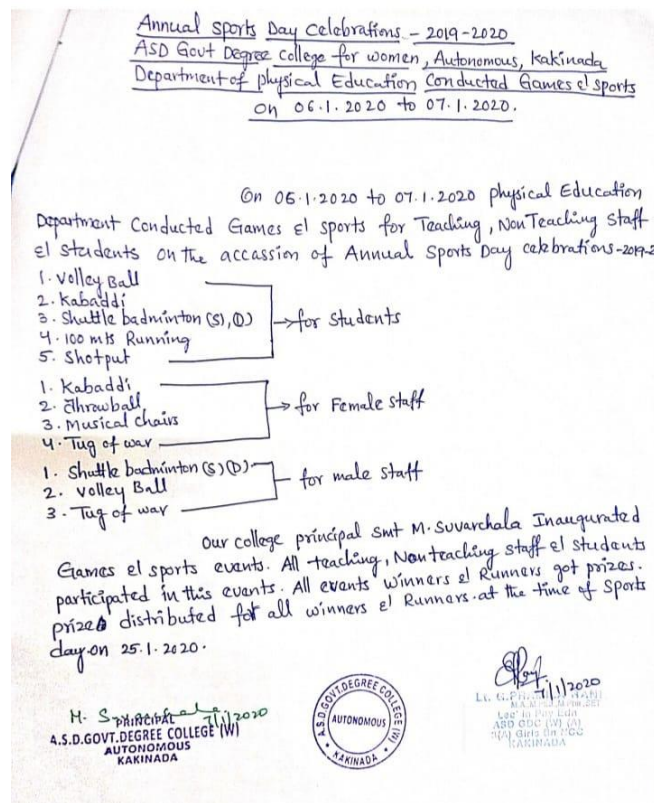 Annual Sports Day Celebrations - 2019-2020
ASD Govt Degree College for women, Autonomous, Kakinada
Department of physical Education Conducted Games & sports
On 06.1.2020 to 07.1.2020.
On 06.1.2020 to 07.1.2020 physical Education
Department Conducted Games & sports for Teaching, Non Teaching Staff
& Students on the accassion of Annual Sports Day celebrations-2019-2
1. Volley Ball
2. Kabaddi
3. Shuttle badminton (S), (D)
→ for Students
4. 100 mts Running
5. Shotput
1. Kabaddi
2. Throwball
→ for Female staff
3. Musical chairs
4. Tug of war
1. Shuttle badminton (S) (D)
for male staff
2. Volley Ball
3. Tug of war
Our college principal smt M. Suvarchala Inaugurated
Games & sports events. All teaching, Non teaching staff & students
participated in this events. All events winners & Runners got prizes.
prizes distributed for all winners & Runners. at the time of Sports
day on 25.1.2020.
M. S 7/1/2020
PRINCIPAL
A.S.D.GOVT.DEGREE COLLEGE (W)
AUTONOMOUS
KAKINADA
A.S.D. GOVT. DEGREE COLLEGE (W)
AUTONOMOUS
KAKINADA
7/1/2020
Lt. G.
ASD GDC (W) (A)
Girls Bn NCC
KAKINADA